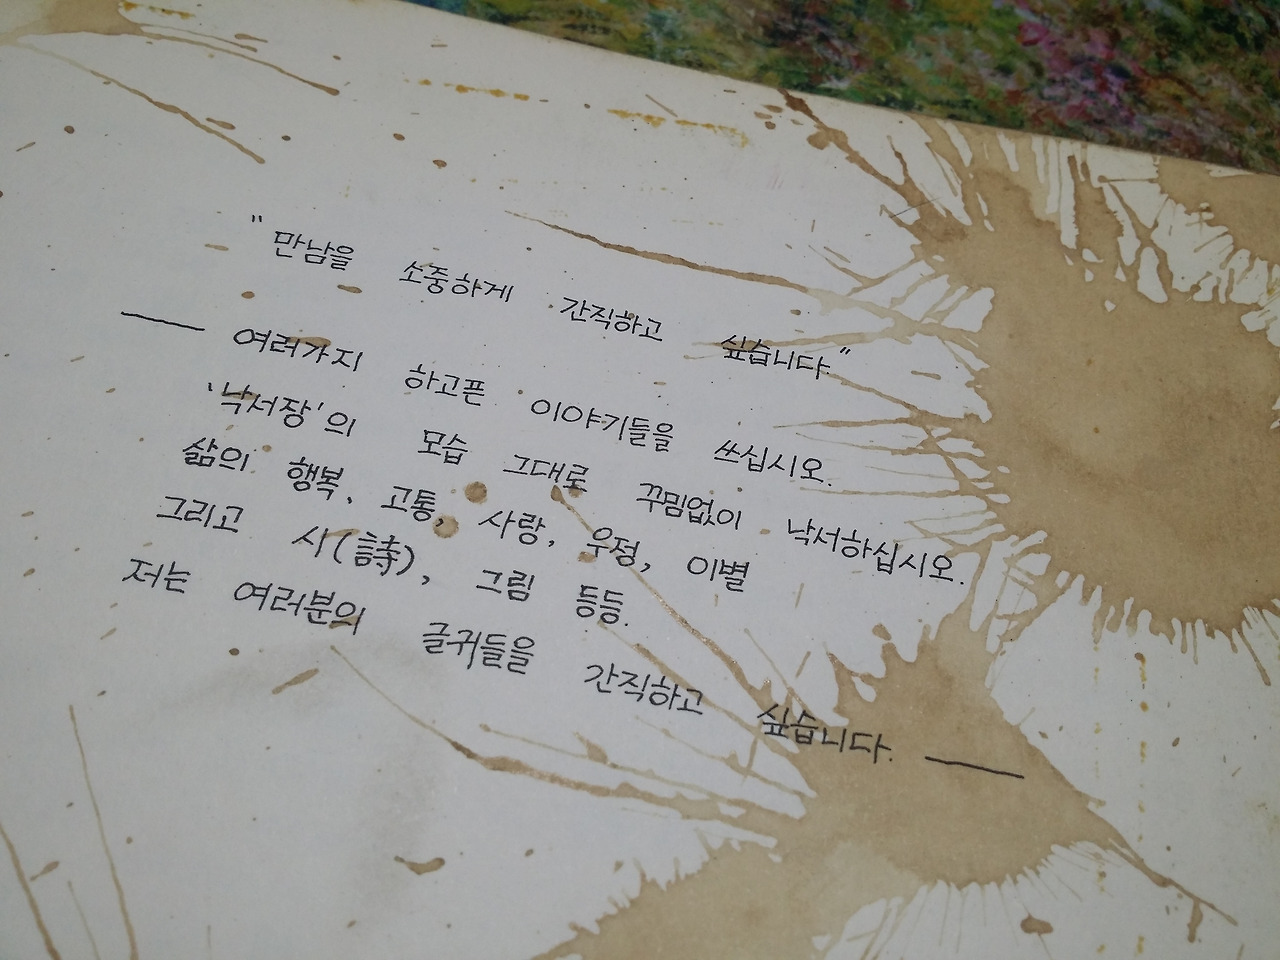 "만남을 소중하게 간직하고 싶습니다."
── 여러가지 하고픈 이야기들을 쓰십시오.
'낙서장'의 모습 그대로 꾸밈없이 낙서하십시오.
삶의 행복, 고통, 사랑, 우정, 이별
그리고 시(詩), 그림 등등.
저는 여러분의 글귀들을 간직하고 싶습니다. ──